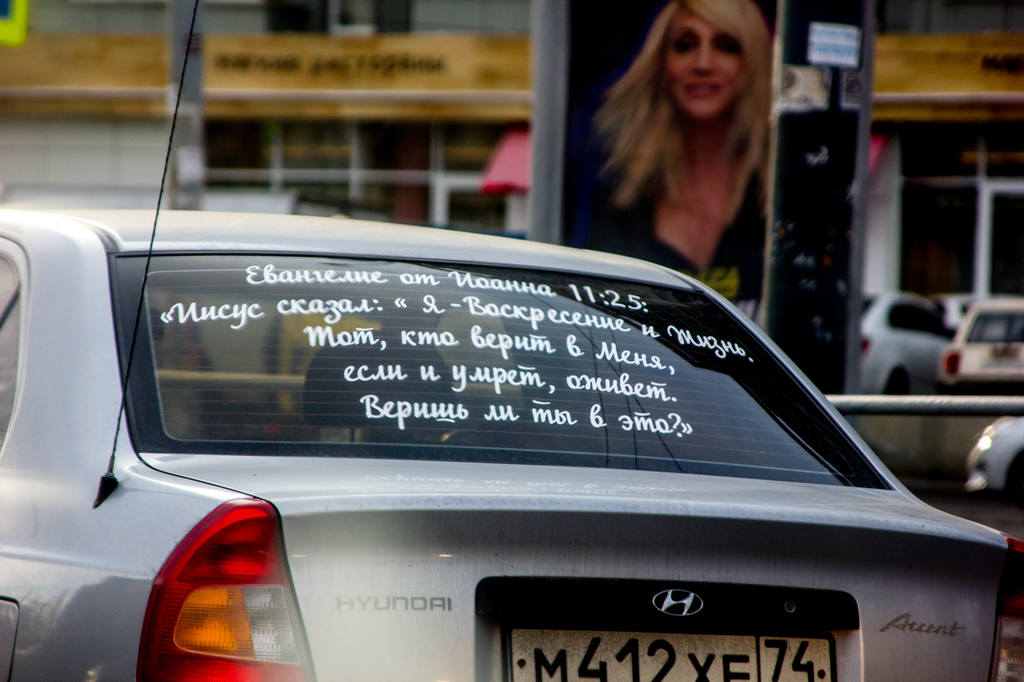 Евангелие от Иоанна 11:25:
«Иисус сказал: « Я - Воскресение и Жизнь.
Тот, кто верит в Меня,
если и умрет, оживет.
Веришь ли ты в это?»
HYUNDAI
Accent
М412ХЕ 74